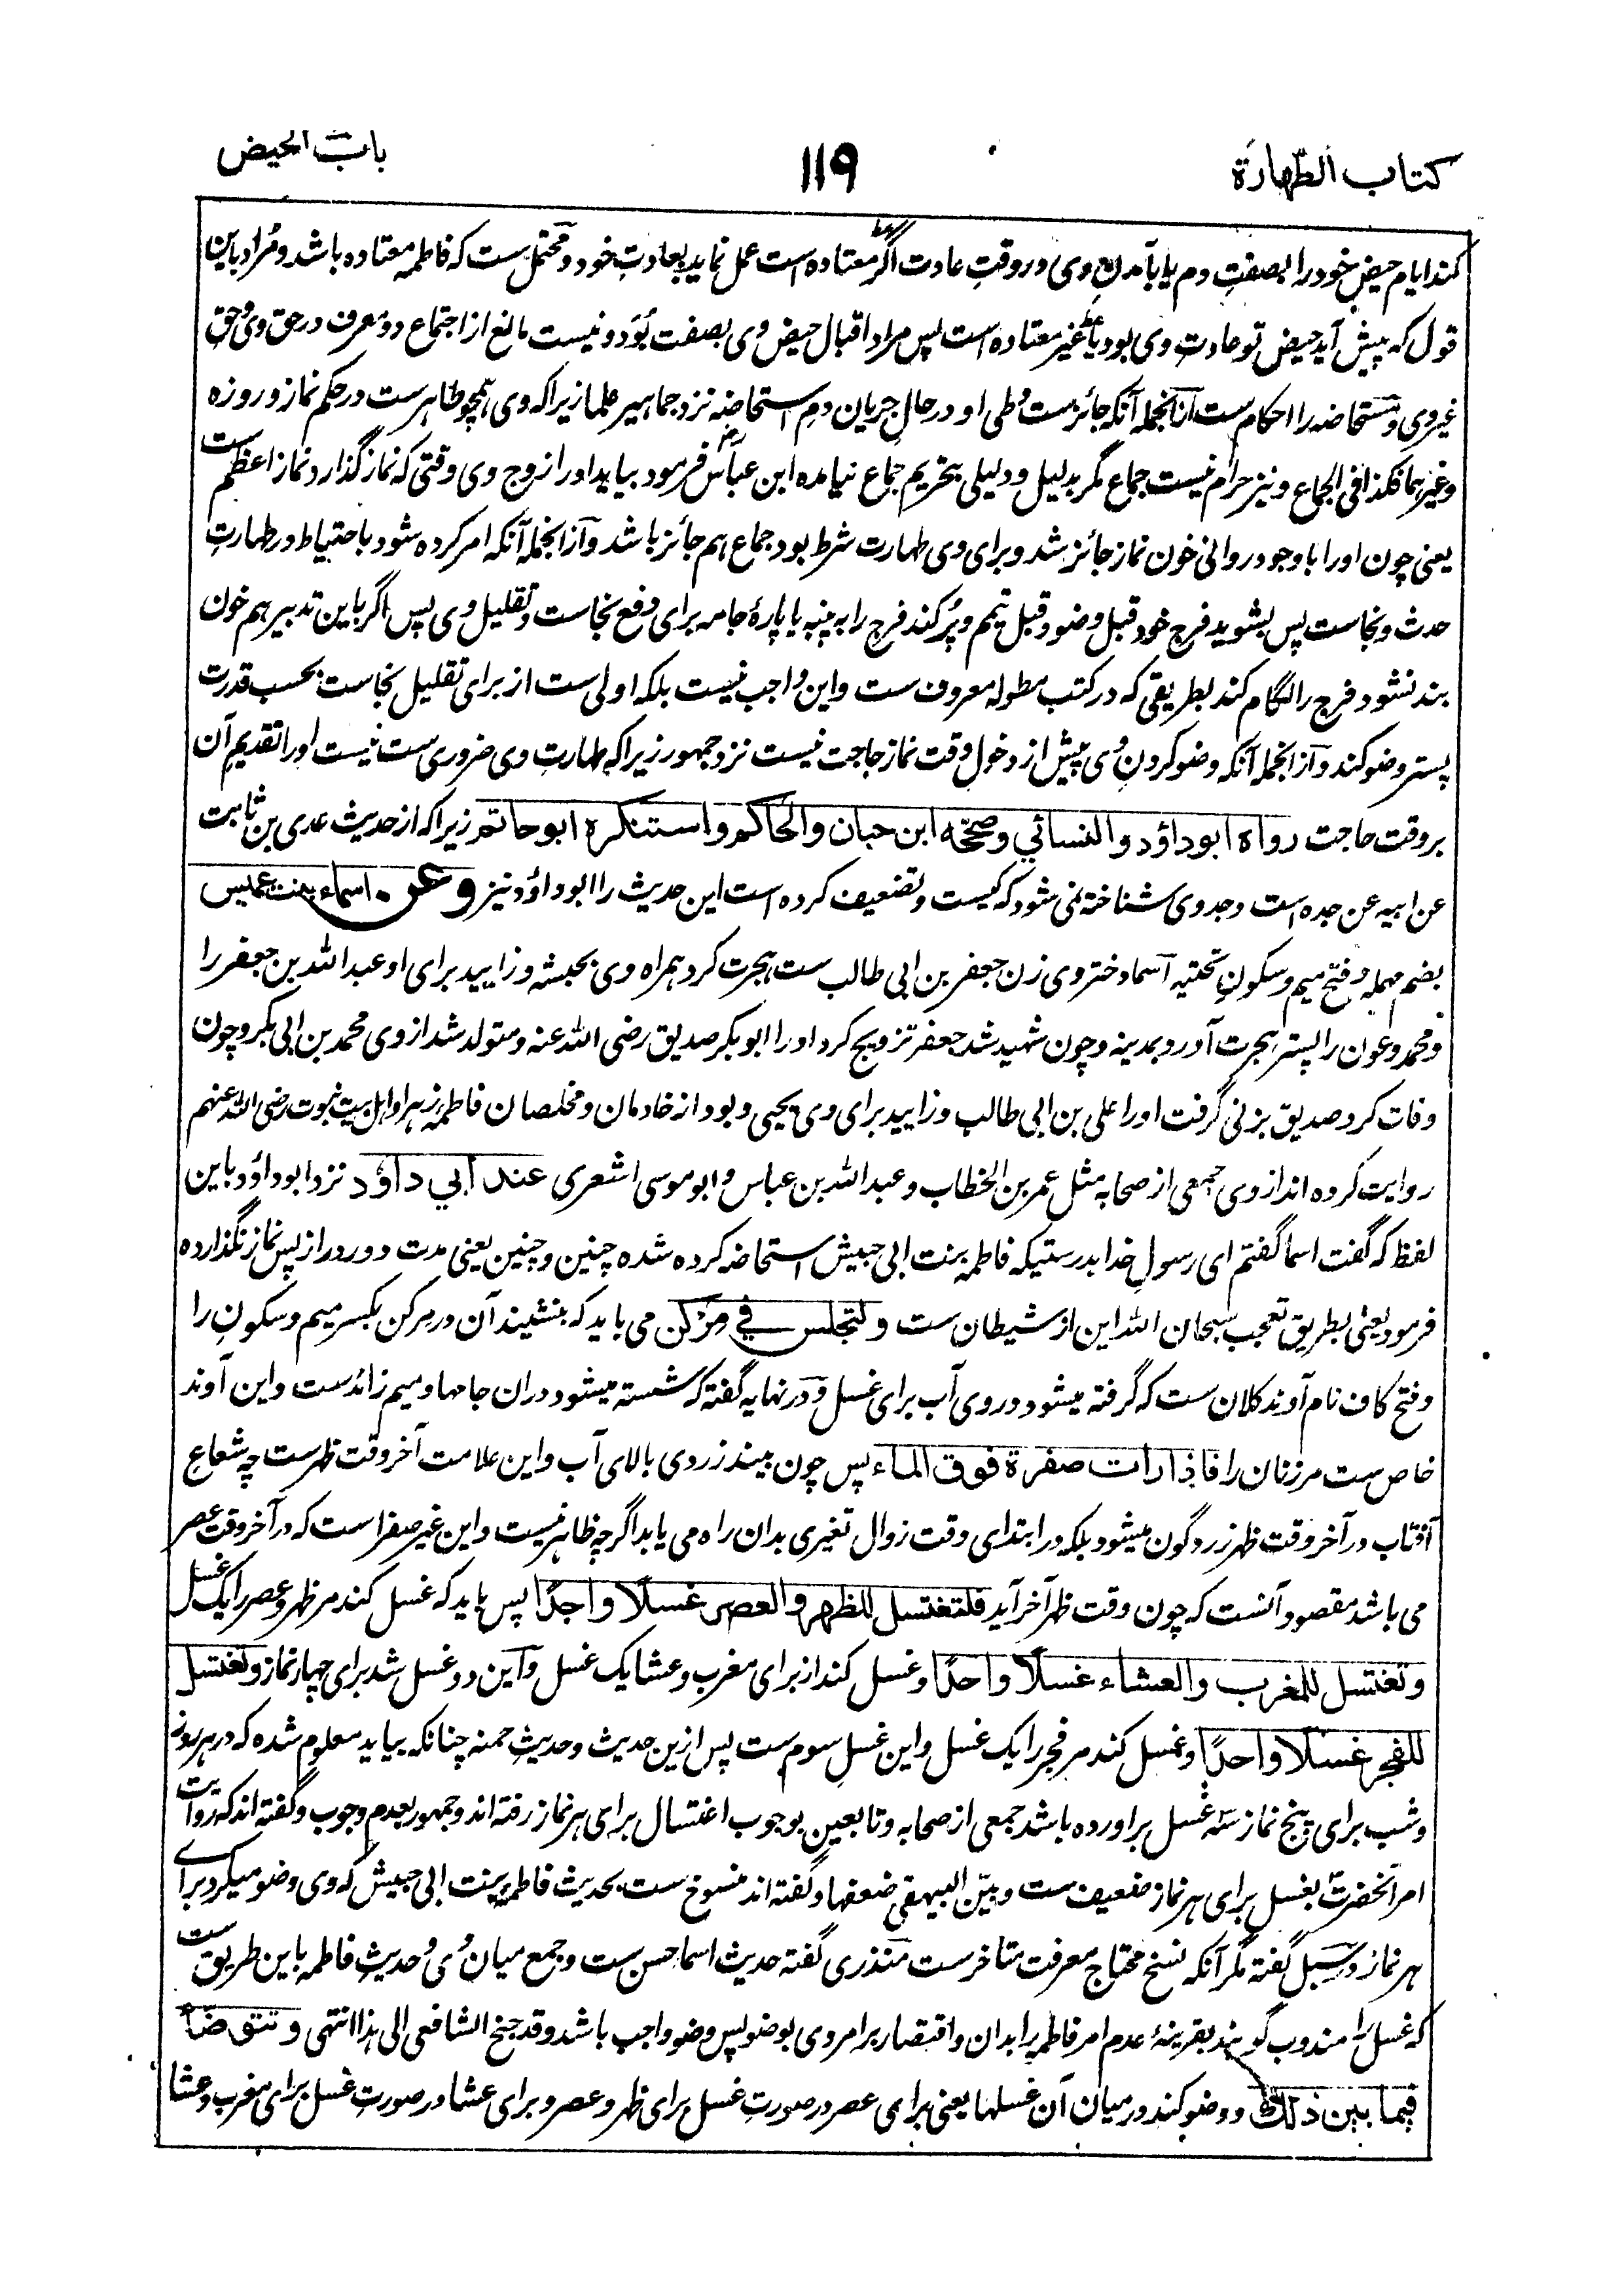 کتاب الطّهارة
۱۱۹
باب الحیض
کند ایام حیض خود را بصفتِ دم یا بآمدنِ وی در وقتِ عادت اگر معتاده است عمل نماید بعادتِ خود و محتمل ست که فاطمه معتاده باشد و مُراد باین
قول که پیش آید حیض تو عادتِ وی بود یا غیر معتاده است پس مراد اقبال حیض وی بصفت بُوَد و نیست مانع از اجتماع دو معرف در حق وی و حقِ
غیر وی و مستحاضه را احکام ست ازانجمله آنکه جائزست وطی او در حالِ جریان دمِ استحاضه نزد جماهیر علما زیرا که وی همچو طاهر ست در حکم نماز و روزه
وغیرهما فکذا فی الجماع و نیز حرام نیست جماع مگر بدلیل و دلیلی بتحریم جماع نیامده ابن عباس فرمود بیاید او را زوج وی وقتی که نماز گذارد نماز اعظم ست
یعنی چون او را با وجود روانی خون نماز جائز شد و برای وی طهارت شرط بود جماع هم جائز باشد و ازانجمله آنکه امر کرده شود باحتیاط در طهارتِ
حدث و نجاست پس بشوید فرجِ خود قبل وضو و قبل تیمم و پُر کند فرج را به پنبه یا پارهٔ جامه برای دفع نجاست و تقلیل وی پس اگر باین تدبیر هم خون
بند نشود فرج را لگام کند بطریقی که در کتب مطوله معروف ست و این واجب نیست بلکه اولی ست از برای تقلیل نجاست بحسب قدرت
پستر وضو کند و ازانجمله آنکه وضو کردنِ وی پیش از دخولِ وقت نماز حاجت نیست نزد جمهور زیرا که طهارتِ وی ضروری ست نیست او را تقدیم آن
بر وقت حاجت رواه ابوداؤد والنسائي وصححه ابن حبان والحاكم واستنكره ابوحاتم زیرا که از حدیث عدی بن ثابت
عن ابیه عن جده است و جد وی شناخته نمی شود که کیست و تضعیف کرده است این حدیث را ابوداؤد نیز وعن اسماء بنت عمیس
بضم مهمله و فتح میم و سکونِ تحتیه آسما دختر وی زن جعفر بن ابی طالب ست هجرت کرد همراه وی بحبشه و زایید برای او عبدالله بن جعفر را
و محمد و عون را پستر هجرت آورد بمدینه و چون شهید شد جعفر تزویج کرد او را ابوبکر صدیق رضی الله عنه و متولد شد از وی محمد بن ابی بکر و چون
وفات کرد صدیق بزنی گرفت او را علی بن ابی طالب و زایید برای وی یحیی و بود از خادمان و مخلصان فاطمهٔ زهرا و اهل بیت نبوت رضی الله عنهم
روایت کرده اند از وی جمعی از صحابه مثل عمر بن الخطاب و عبدالله بن عباس و ابو موسی اشعری عند أبي داؤد نزد ابوداؤد باین
لفظ که گفت اسما گفتم ای رسولِ خدا بدرستیکه فاطمه بنت ابی حبیش استحاضه کرده شده چنین و چنین یعنی مدت دور دراز پس نماز نگذارده
فرمود یعنی بطریق تعجب سبحان الله این از شیطان ست ولتجلس في مركن می باید که بنشیند آن در مرکن بکسر میم و سکونِ را
و فتح کاف نام آوند کلان ست که گرفته میشود در وی آب برای غسل و در نهایه گفته که شسته میشود دران جامها و میم زائدست و این آوند
خاص ست مر زنان را فاذا رات صفرة فوق الماء پس چون بیند زردی بالای آب و این علامت آخر وقت ظهرست چه شعاعِ
آفتاب در آخر وقت ظهر زرد گون میشود بلکه در ابتدای وقت زوال تغیری بدان راه می یابد اگر چه ظاهر نیست و این غیر صفرا است که در آخر وقت عصر
می باشد مقصود آنست که چون وقت ظهر آخر آید فلتغتسل للظهر والعصر غسلا واحدًا پس باید که غسل کند مر ظهر و عصر را یک غسل
وتغتسل للمغرب والعشاء غسلًا واحدًا و غسل کند از برای مغرب و عشا یک غسل و این دو غسل شد برای چهار نماز وتغتسل
للفجر غسلا واحدًا و غسل کند مر فجر را یک غسل و این غسلِ سوم ست پس ازین حدیث و حدیثِ حمنه چنانکه بیاید معلوم شده که در هر روز
و شب برای پنج نماز سه غسل برآورده باشد جمعی از صحابه و تابعین بوجوب اغتسال برای هر نماز رفته اند و جمهور بعدم وجوب و گفته اند که روایت
امر آنحضرت بغسل برای هر نماز ضعیف ست و بین البیهقی ضعفها و گفته اند منسوخ ست بحدیث فاطمه بنت ابی حبیش که وی وضو میکرد برای
هر نماز و در سبل گفته مگر آنکه نسخ محتاج معرفت متاخر ست منذری گفته حدیث اسما حسن ست و جمع میان وی و حدیثِ فاطمه باین طریق ست
که غسل را مندوب گویند بقرینهٔ عدم امر فاطمه را بدان و اقتصار بر امر وی بوضو پس وضو واجب باشد و قد جنح الشافعی الی هذا انتهی وتتوضأ
فيما بين ذلك و وضو کند در میان آن غسلها یعنی برای عصر در صورتِ غسل برای ظهر و عصر و برای عشا در صورتِ غسل برای مغرب و عشا